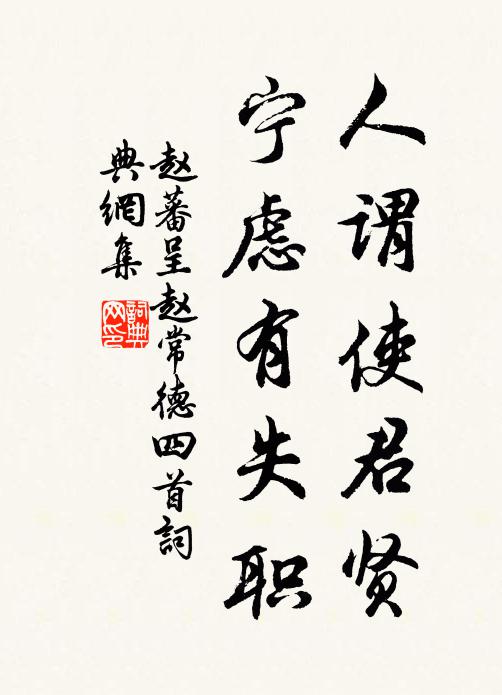 人谓使君贤
宁虑有失职
赵蕃呈赵常德四首詞
典網集
詞典网印